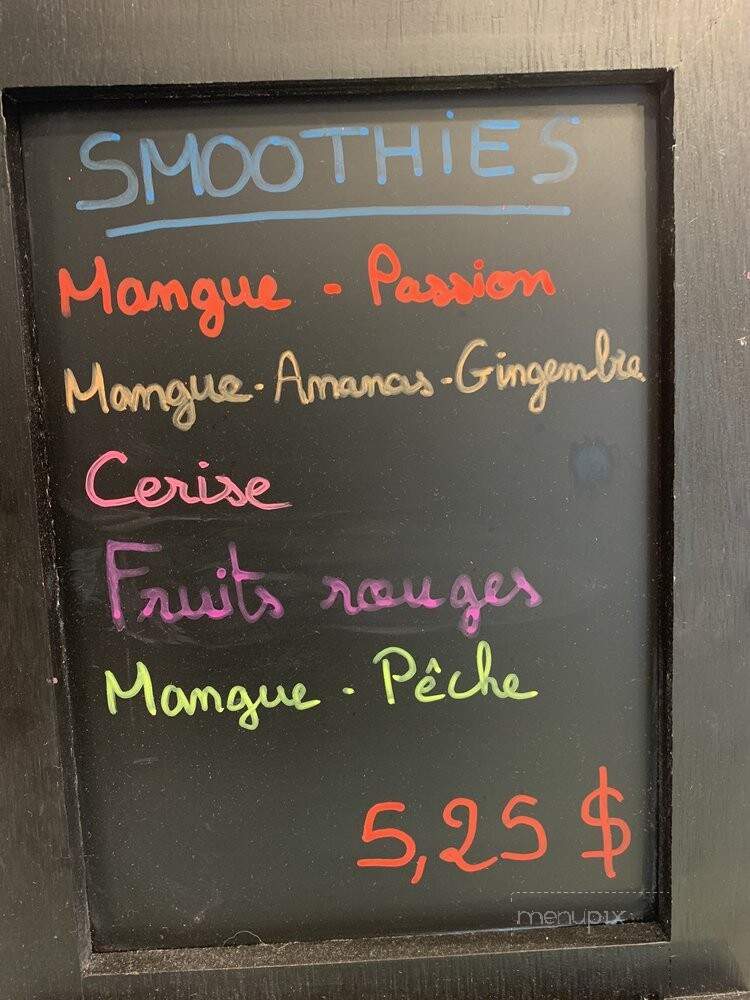 SMOOTHiES
Mangue - Passion
Mangue - Ananas - Gingembre
Cerise
Fruits rouges
Mangue - Pêche
5,25 $
menupix